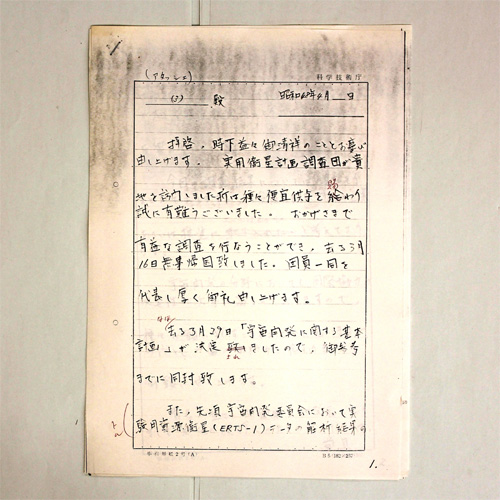 科学技術庁
(アタッシェ)
(3) 殿
昭和48年4月 日
拝啓、時下益々御清祥のこととお慶び
申し上げます。実用衛星計画調査団が貴
地を訪れました折は種々便宜供与を賜わり
誠に有難うございました。おかげさまで
有益な調査を行なうことができ、去る3月
16日無事帰国致しました。団員一同を
代表し厚く御礼申し上げます。
なお
去る3月29日「宇宙開発に関する基本
計画」が決定されましたので、御参考
までに同封致します。
また、先頃宇宙開発委員会において実
験用資源衛星(ERTS-1)データの解析結果の
B5(182/257)
1.